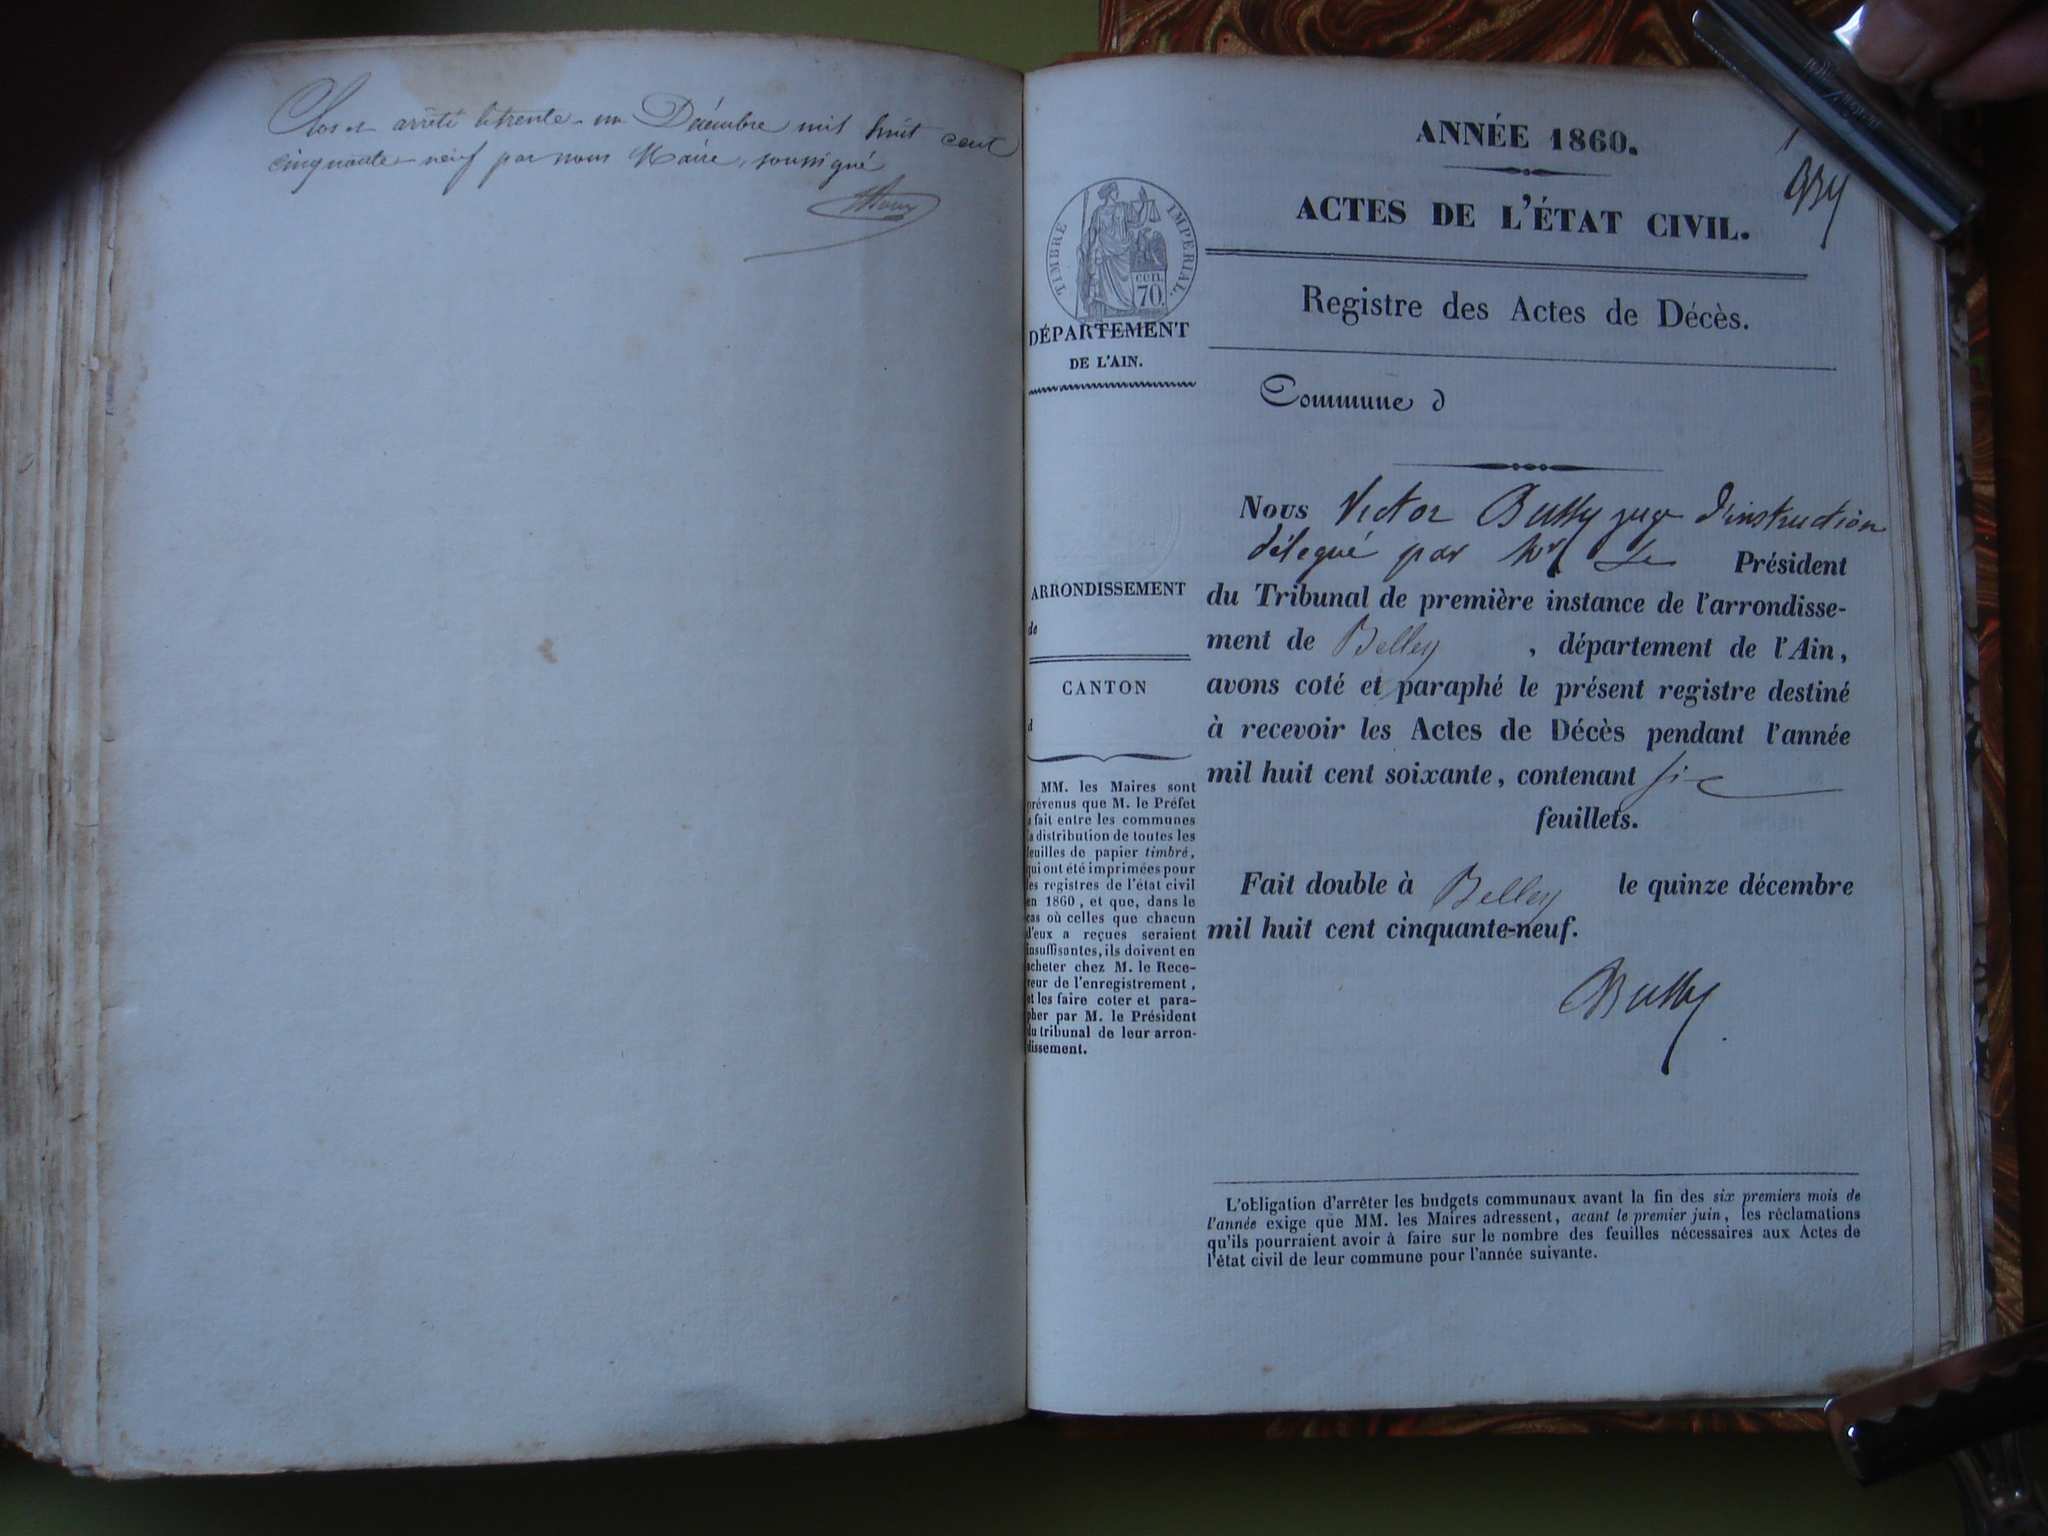 Clos et arrêté le trente-un Décembre mil huit cent
cinquante-neuf par nous Maire, soussigné
ANNÉE 1860.
ACTES DE L'ÉTAT CIVIL.
TIMBRE IMPÉRIAL.
cen.
70.
Registre des Actes de Décès.
DÉPARTEMENT
DE L'AIN.
Commune d
ARRONDISSEMENT
de
CANTON
d
MM. les Maires sont
prévenus que M. le Préfet
a fait entre les communes
la distribution de toutes les
feuilles de papier timbré,
qui ont été imprimées pour
les registres de l'état civil
en 1860, et que, dans le
cas où celles que chacun
d'eux a reçues seraient
insuffisantes, ils doivent en
acheter chez M. le Rece-
veur de l'enregistrement,
et les faire coter et para-
pher par M. le Président
du tribunal de leur arron-
dissement.
Nous Victor Bussy juge d'instruction
délégué par Mr Le Président
du Tribunal de première instance de l'arrondisse-
ment de Belley, département de l'Ain,
avons coté et paraphé le présent registre destiné
à recevoir les Actes de Décès pendant l'année
mil huit cent soixante, contenant six
feuillets.
Fait double à Belley le quinze décembre
mil huit cent cinquante-neuf.
Bussy
L'obligation d'arrêter les budgets communaux avant la fin des six premiers mois de
l'année exige que MM. les Maires adressent, avant le premier juin, les réclamations
qu'ils pourraient avoir à faire sur le nombre des feuilles nécessaires aux Actes de
l'état civil de leur commune pour l'année suivante.